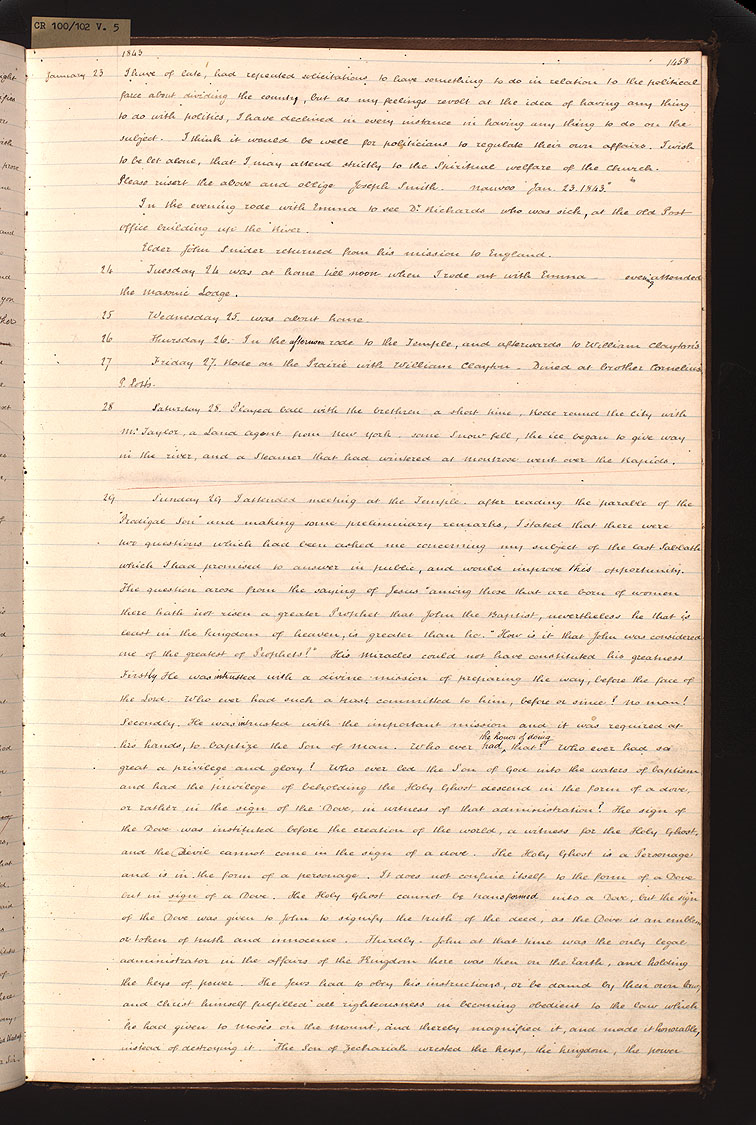 CR 100/102 V. 5
1843
1458
January 23 I have of late, had repeated solicitations to have something to do in relation to the political
farce about dividing the county, but as my feelings revolt at the idea of having any thing
to do with politics, I have declined in every instance in having any thing to do on the
subject. I think it would be well for politicians to regulate their own affairs. I wish
to be let alone, that I may attend strictly to the Spiritual welfare of the Church.
Please insert the above and oblige Joseph Smith. Nauvoo Jan. 23. 1843"
In the evening rode with Emma to see Dr Richards who was sick, at the old Post
office building up the River.
Elder John Snider returned from his mission to England.
24 Tuesday 24 was at home till noon when I rode out with Emma — evening attended
the Masonic Lodge.
25 Wednesday 25. was about home.
26 Thursday 26. In the afternoon rode to the Temple, and afterwards to William Clayton's
27 Friday 27. Rode on the Prairie with William Clayton. Dined at brother Cornelius
P. Lott's.
28 Saturday 28. Played ball with the brethren a short time, Rode round the City with
Mr Taylor, a Land agent from New York. some Snow fell, the ice began to give way
in the river, and a Steamer that had wintered at Montrose went over the Rapids.
29 Sunday 29 I attended meeting at the Temple. after reading the parable of the
"Prodigal Son" and making some preliminary remarks, I stated that there were
two questions which had been asked me concerning my subject of the last Sabbath
which I had promised to answer in public, and would improve this opportunity.
The question arose from the saying of Jesus "among those that are born of women
there hath not risen a greater Prophet that John the Baptist, nevertheless he that is
least in the kingdom of heaven, is greater than he." "How is it that John was considered
one of the greatest of Prophets?" His miracles could not have constituted his greatness
Firstly He was intrusted with a divine mission of preparing the way, before the face of
the Lord. Who ever had such a trust committed to him, before or since? no man!
Secondly. He was intrusted with the important mission and it was required at
his hands, to baptize the Son of Man. Who ever had the honor of doing that? Who ever had so
great a privilege and glory? Who ever led the Son of God into the waters of baptism
and had the privilege of beholding the Holy Ghost descend in the form of a dove,
or rather in the sign of the Dove, in witness of that administration? The sign of
the Dove was instituted before the creation of the world, a witness for the Holy Ghost,
and the Devil cannot come in the sign of a dove. The Holy Ghost is a Personage
and is in the form of a personage. It does not confine itself to the form of a Dove
but in sign of a Dove. The Holy Ghost cannot be transformed into a Dove, but the sign
of the Dove was given to John to signify the truth of the deed, as the Dove is an emblem
or token of truth and innocence. Thirdly. John at that time was the only legal
administrator in the affairs of the Kingdom there was then on the Earth, and holding
the keys of power. The Jews had to obey his instructions, or be damd by their own law,
and Christ himself fulfilled all righteousness in becoming obedient to the law which
he had given to Moses on the Mount, and thereby magnified it, and made it honorable,
instead of destroying it. The Son of Zechariah wrested the keys, the kingdom, the power